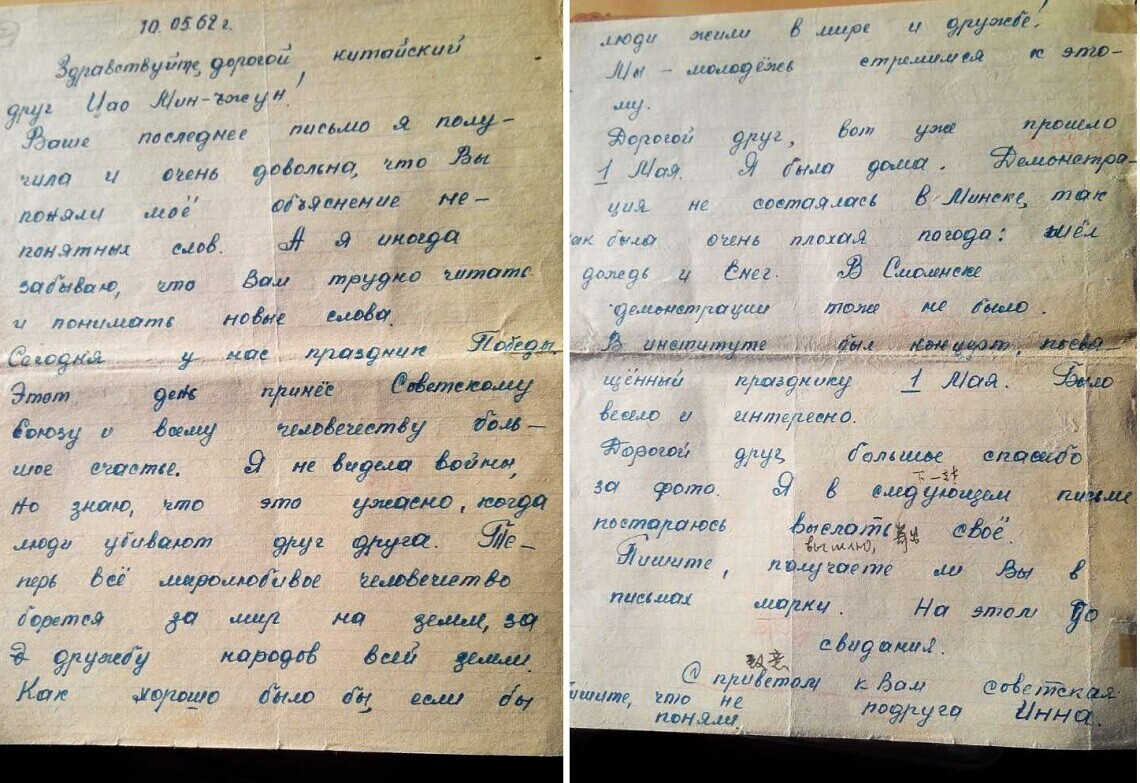 10.05.62 г.
Здравствуйте, дорогой китайский
друг Цао Мин-чжун!
Ваше последнее письмо я полу-
чила и очень довольна, что Вы
поняли моё объяснение не-
понятных слов. А я иногда
забываю, что Вам трудно читать
и понимать новые слова.
Сегодня у нас праздник Победы.
Этот день принёс Советскому
Союзу и всему человечеству боль-
шое счастье. Я не видела войны,
но знаю, что это ужасно, когда
люди убивают друг друга. Те-
перь всё миролюбивое человечество
борется за мир на земле, за
дружбу народов всей земли.
Как хорошо было бы, если бы
люди жили в мире и дружбе!
Мы - молодёжь стремимся к это-
му.
Дорогой друг, вот уже прошло
1 Мая. Я была дома. Демонстра-
ция не состоялась в Минске, так
как была очень плохая погода: шёл
дождь и снег. В Смоленске
демонстрации тоже не было.
В институте был концерт, посвя-
щённый празднику 1 Мая. Было
весело и интересно.
Дорогой друг большое спасибо
下一封
за фото. Я в следующем письме
постараюсь выслать своё.
вышлю, 寄出
Пишите, получаете ли Вы в
письмах марки. На этом до
свидания.
致意
С приветом к Вам советская
подруга Инна.
Пишите, что не
поняли.